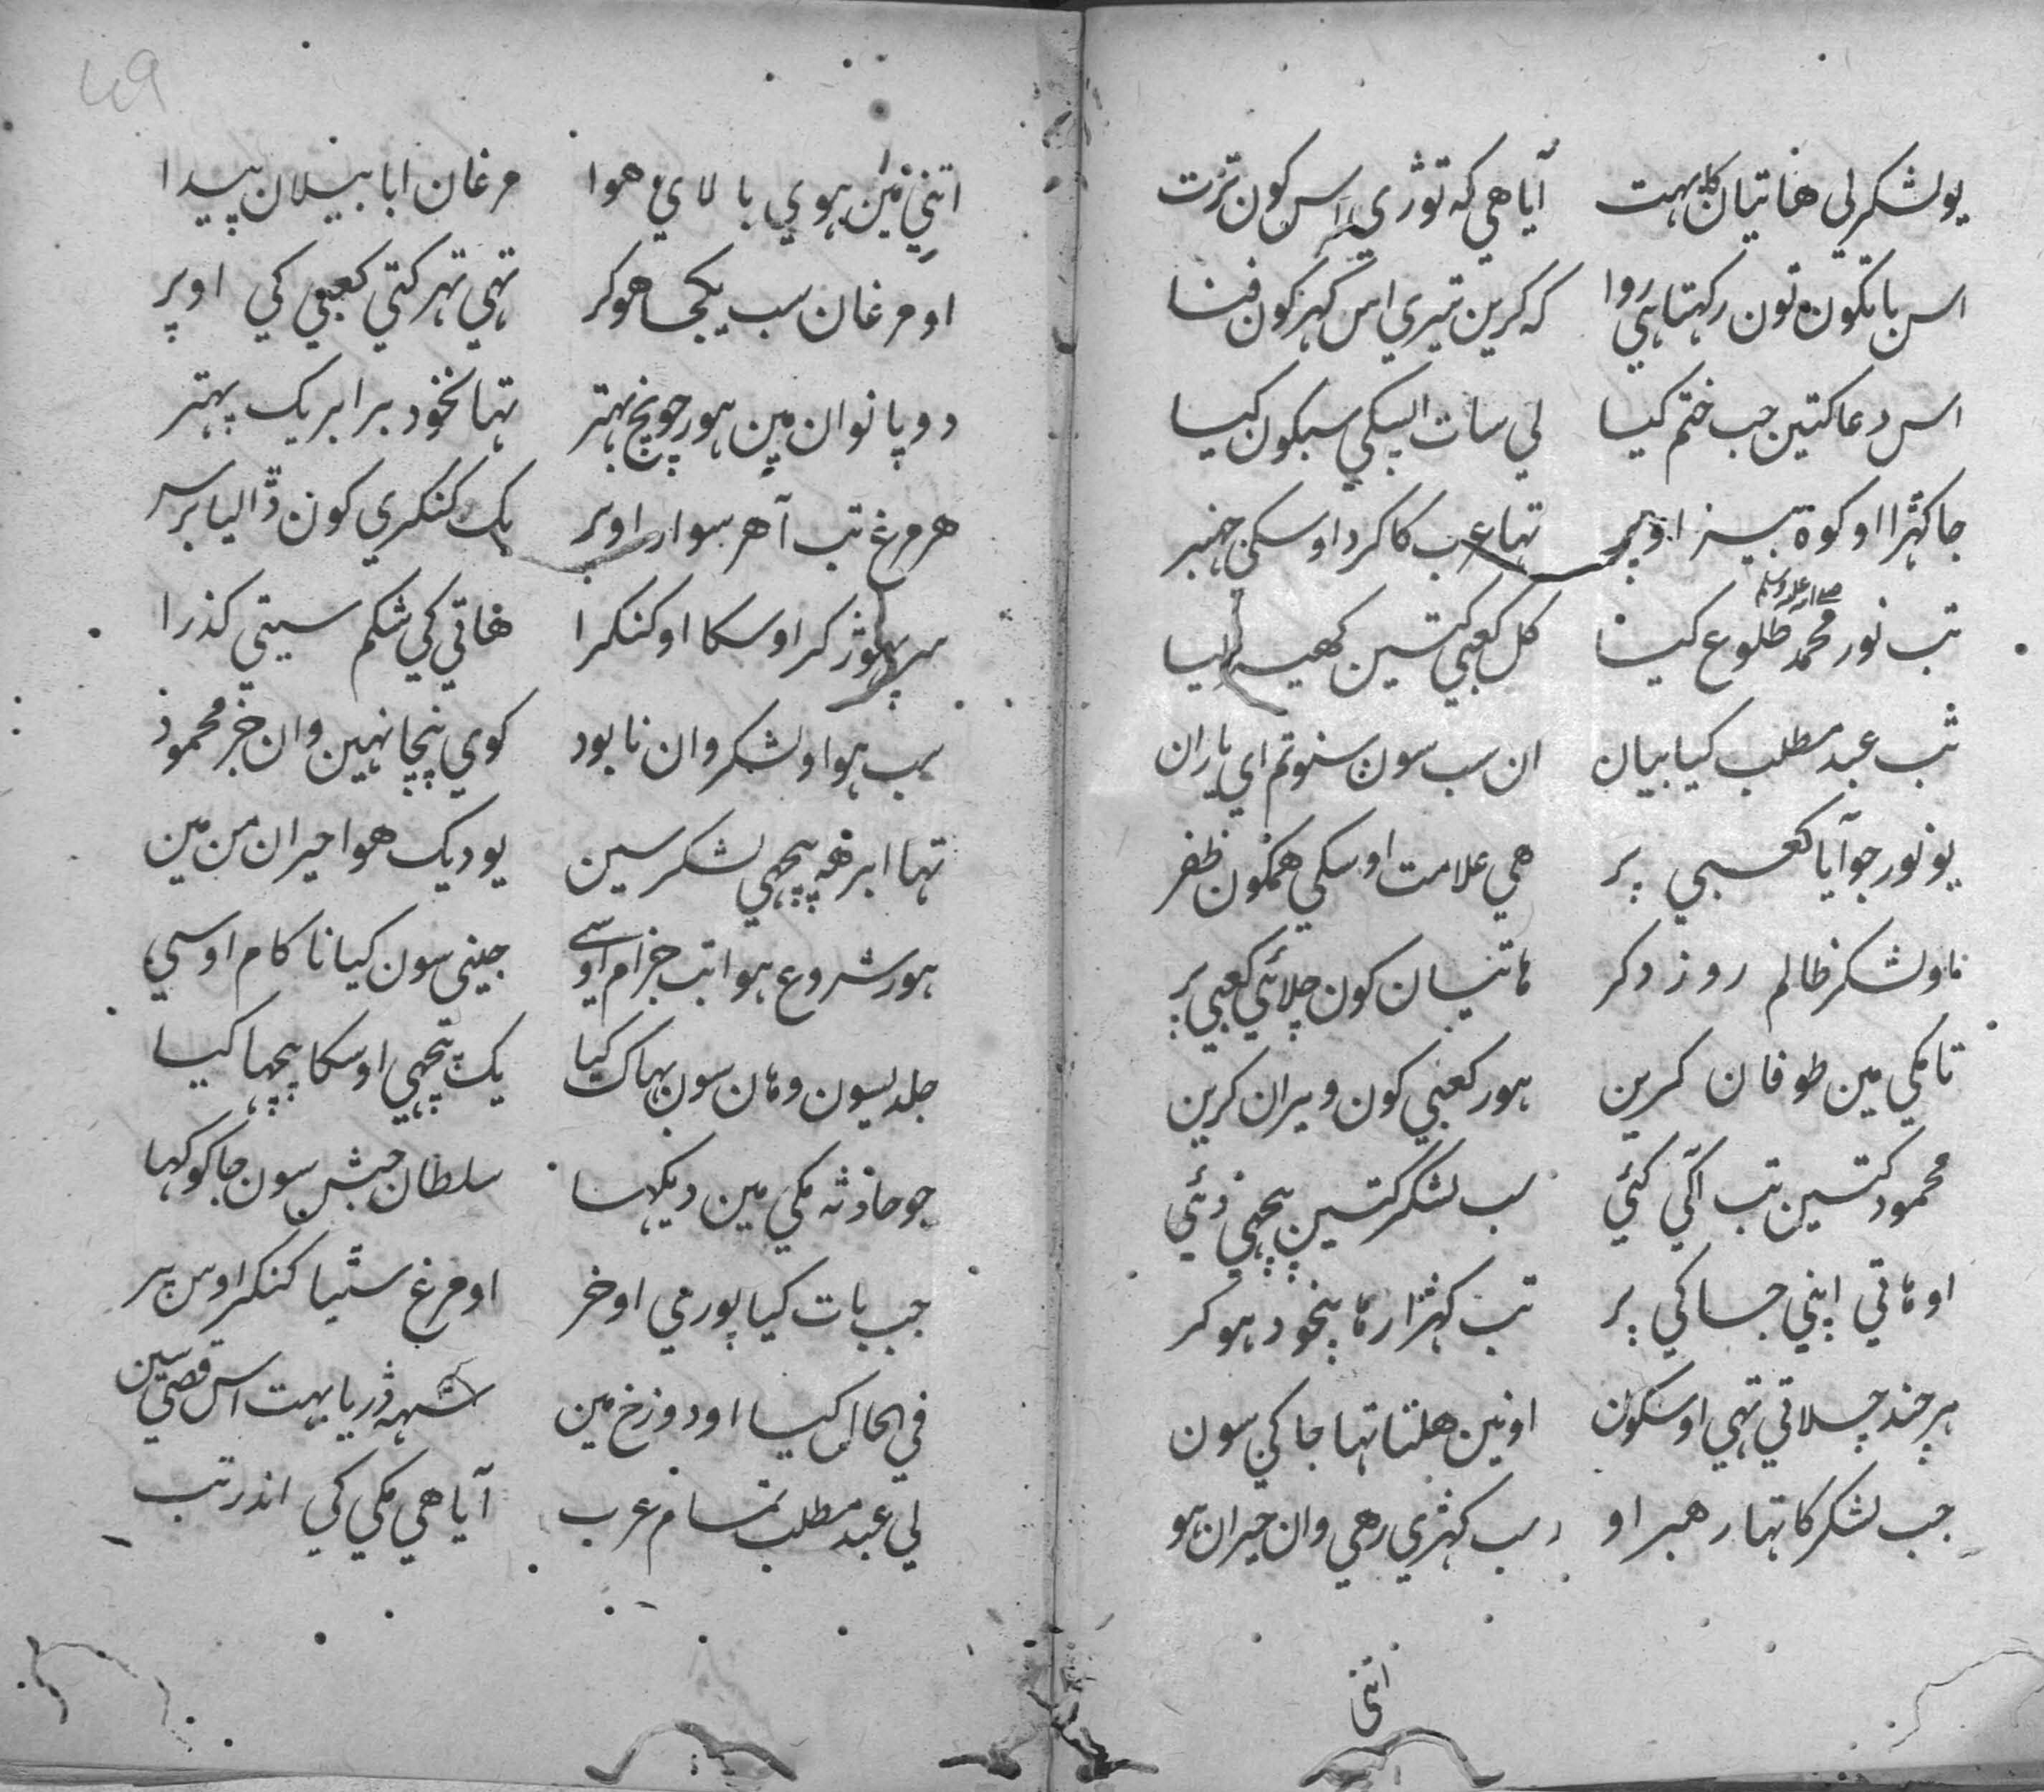 یو لشکر لی هاتیان کا بہت آیا هی کہ توڑی اس کون ترت
اس بات کون تون رکہتا ہی روا کہ کرین تیری اس گہر کون فنا
اس دعا کتین جب ختم کیا لی سات اپسکی سبکون کیا
جا کہڑا او کوہ اوپر تہا عرب کا کرد اوسکی
تب نور محمد صلی اللہ علیہ وسلم طلوع کیا کل کعبی کتین کھیر لیا
تب عبد مطلب کیا بیان ان سب سون سنو تم ای یاران
یو نور جو آیا کعبی پر هی علامت اوسکی همکون ظفر
او لشکر ظالم روز دکر هاتیان کون چلائی کعبی پر
تا مکی مین طوفان کرین ہور کعبی کون ویران کرین
محمود کتین تب اگی کئی سب لشکر کتین پچھی دئی
او هاتی اپنی جاکی پر تب کہڑا رہا بیخود ہو کر
ہر چند چلاتی تہی اوسکون او نین هلتا تہا جاکی سون
جب لشکر کا تہا رهبر او سب کہڑی رهی وان حیران ہو
اتنی
49
اتنی مین ہوی با لای هوا مرغان ابابیلان پیدا
او مرغان سب یکجا هوکر تہی تہرکتی کعبی کی اوپر
دو پانوان مین ہور چونچ بہتر تہا نخود برابر یک پہتر
هر مرغ تب آ هر سوار اوپر یک کنکری کون ڈالیا بر سر
سر پہوڑ کر اوسکا او کنکرا هاتی کی شکم سیتی گذرا
سب ہوا او لشکر وان نابود کوی بچا نہین وان جز محمود
تہا ابرهہ پچھی لشکر سین یو دیک هوا حیران من مین
ہور شروع ہوا تب جزام اوسی جینی سون کیا ناکام اوسی
جلدی سون وهان سون بہاک کیا یک پنچھی اوسکا پچہا کیا
جو حادثہ مکی مین دیکہا سلطان حبش سون جا کو کہا
جب بات کیا پوری او خر او مرغ سٹیا کنکر اوس پر
فی الحال کیا او دوزخ مین شہہ ڈریا بہت اس قصی سین
لی عبد مطلب تمام عرب آیا هی مکی کی اندر تب